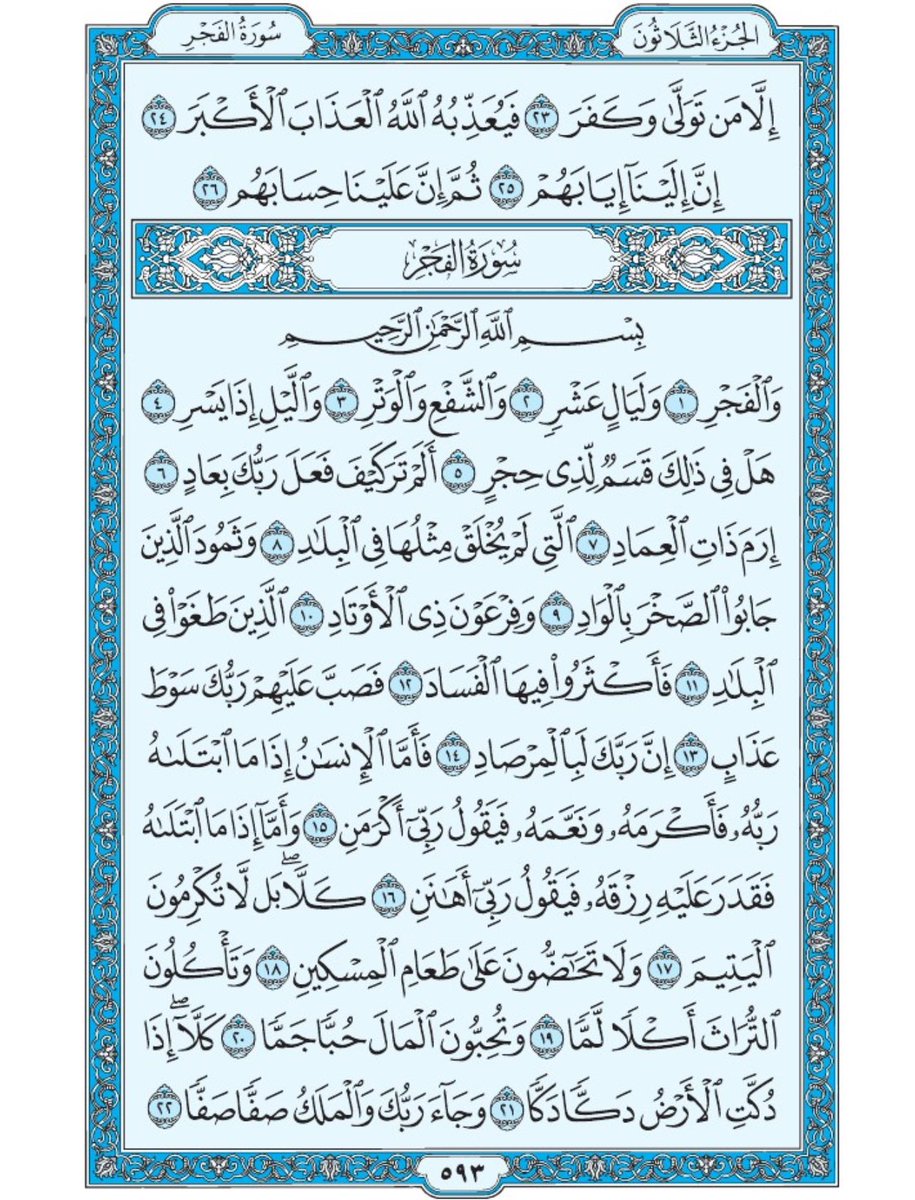 الجُزْءُ الثَّلَاثُونَ
سُورَةُ الفَجْرِ
إِلَّا مَن تَوَلَّىٰ وَكَفَرَ ٢٣ فَيُعَذِّبُهُ ٱللَّهُ ٱلْعَذَابَ ٱلْأَكْبَرَ ٢٤
إِنَّ إِلَيْنَآ إِيَابَهُمْ ٢٥ ثُمَّ إِنَّ عَلَيْنَا حِسَابَهُم ٢٦
سُورَةُ الفَجْرِ
بِسْمِ ٱللَّهِ ٱلرَّحْمَٰنِ ٱلرَّحِيمِ
وَٱلْفَجْرِ ١ وَلَيَالٍ عَشْرٍ ٢ وَٱلشَّفْعِ وَٱلْوَتْرِ ٣ وَٱلَّيْلِ إِذَا يَسْرِ ٤
هَلْ فِى ذَٰلِكَ قَسَمٌ لِّذِى حِجْرٍ ٥ أَلَمْ تَرَ كَيْفَ فَعَلَ رَبُّكَ بِعَادٍ ٦
إِرَمَ ذَاتِ ٱلْعِمَادِ ٧ ٱلَّتِى لَمْ يُخْلَقْ مِثْلُهَا فِى ٱلْبِلَٰدِ ٨ وَثَمُودَ ٱلَّذِينَ
جَابُوا۟ ٱلصَّخْرَ بِٱلْوَادِ ٩ وَفِرْعَوْنَ ذِى ٱلْأَوْتَادِ ١٠ ٱلَّذِينَ طَغَوْا۟ فِى
ٱلْبِلَٰدِ ١١ فَأَكْثَرُوا۟ فِيهَا ٱلْفَسَادَ ١٢ فَصَبَّ عَلَيْهِمْ رَبُّكَ سَوْطَ
عَذَابٍ ١٣ إِنَّ رَبَّكَ لَبِٱلْمِرْصَادِ ١٤ فَأَمَّا ٱلْإِنسَٰنُ إِذَا مَا ٱبْتَلَىٰهُ
رَبُّهُۥ فَأَكْرَمَهُۥ وَنَعَّمَهُۥ فَيَقُولُ رَبِّىٓ أَكْرَمَنِ ١٥ وَأَمَّآ إِذَا مَا ٱبْتَلَىٰهُ
فَقَدَرَ عَلَيْهِ رِزْقَهُۥ فَيَقُولُ رَبِّىٓ أَهَٰنَنِ ١٦ كَلَّا ۖ بَل لَّا تُكْرِمُونَ
ٱلْيَتِيمَ ١٧ وَلَا تَحَٰٓضُّونَ عَلَىٰ طَعَامِ ٱلْمِسْكِينِ ١٨ وَتَأْكُلُونَ
ٱلتُّرَاثَ أَكْلًا لَّمًّا ١٩ وَتُحِبُّونَ ٱلْمَالَ حُبًّا جَمًّا ٢٠ كَلَّآ ۖ إِذَا
دُكَّتِ ٱلْأَرْضُ دَكًّا دَكًّا ٢١ وَجَآءَ رَبُّكَ وَٱلْمَلَكُ صَفًّا صَفًّا ٢٢
٥٩٣